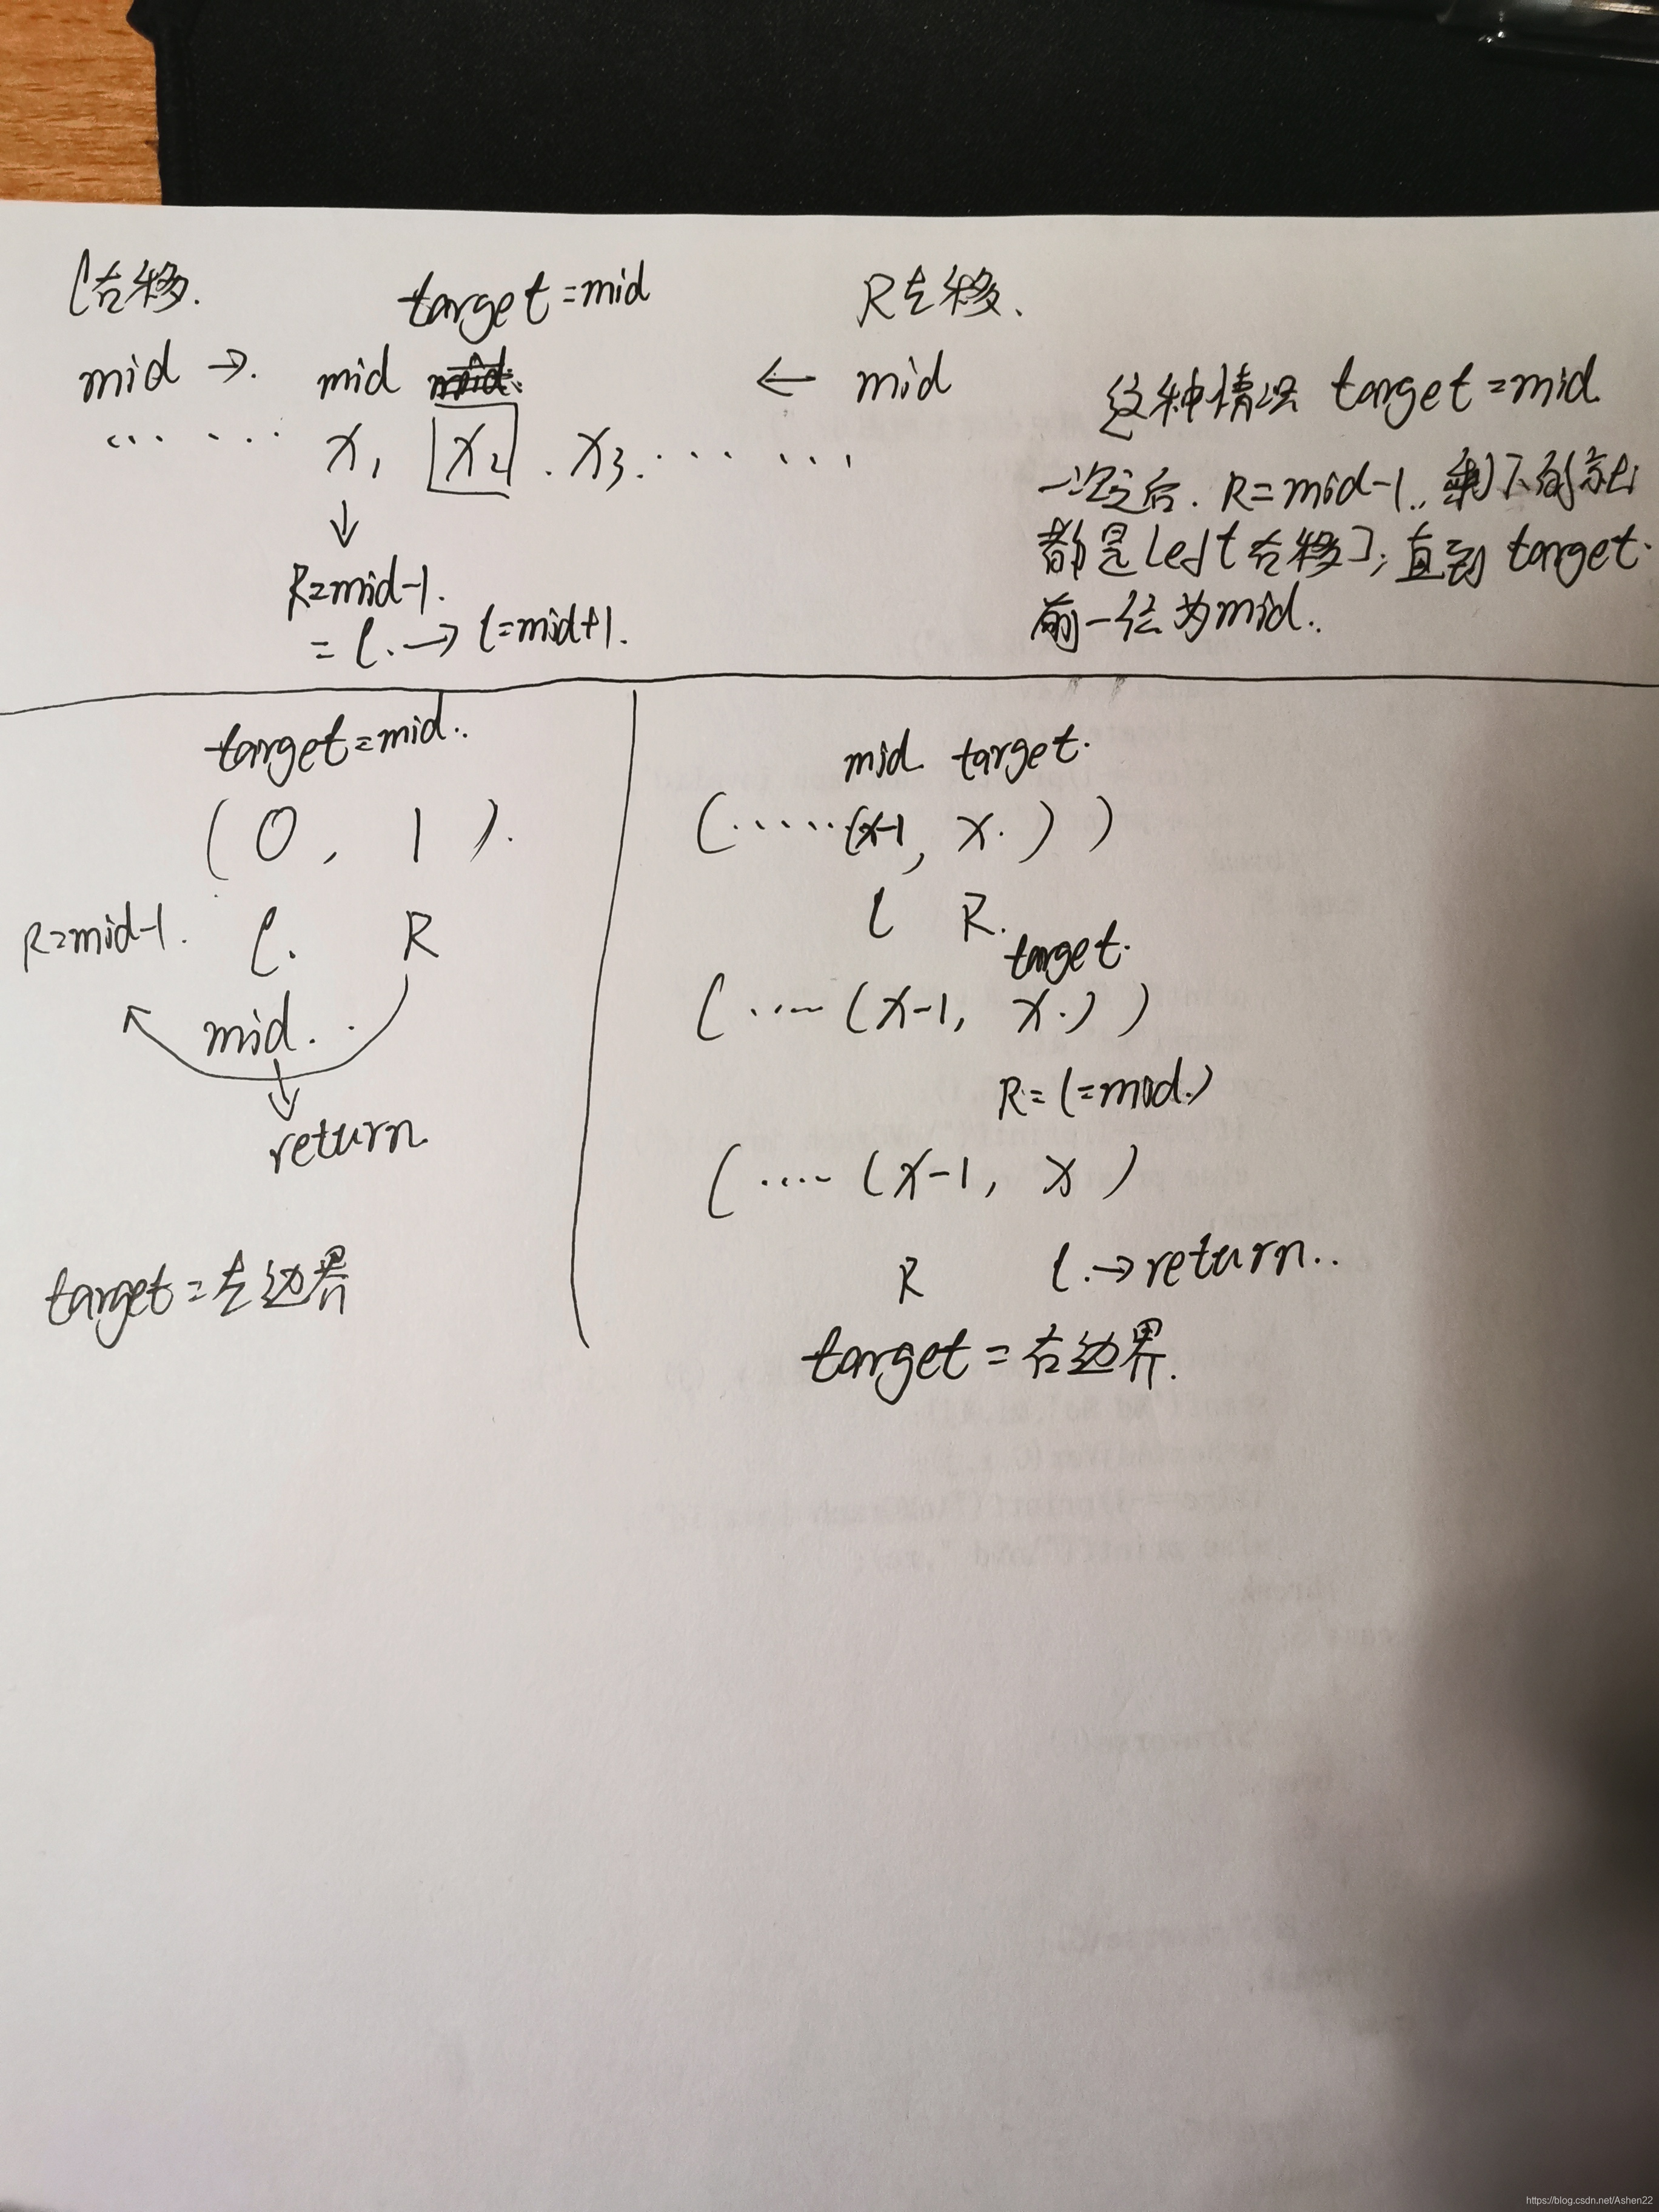 l右移.
target=mid
R左移.
mid →. mid
← mid
…… x1 x2 . x3 ……
↓
R=mid-1.
= l. → l=mid+1.
这种情况 target=mid
一次之后. R=mid-1., 剩下的就
都是left右移], 直到 target.
前一位为mid..
target=mid..
( 0 , 1 ).
R=mid-1. l. R
mid.
return.
target=左边界
mid. target.
(.....(x-1, x. ) )
l R.
target.
(....(x-1, x.) )
R=l=mid.)
(....(x-1, x)
R l.→return..
target=右边界.
https://blog.csdn.net/Ashen22